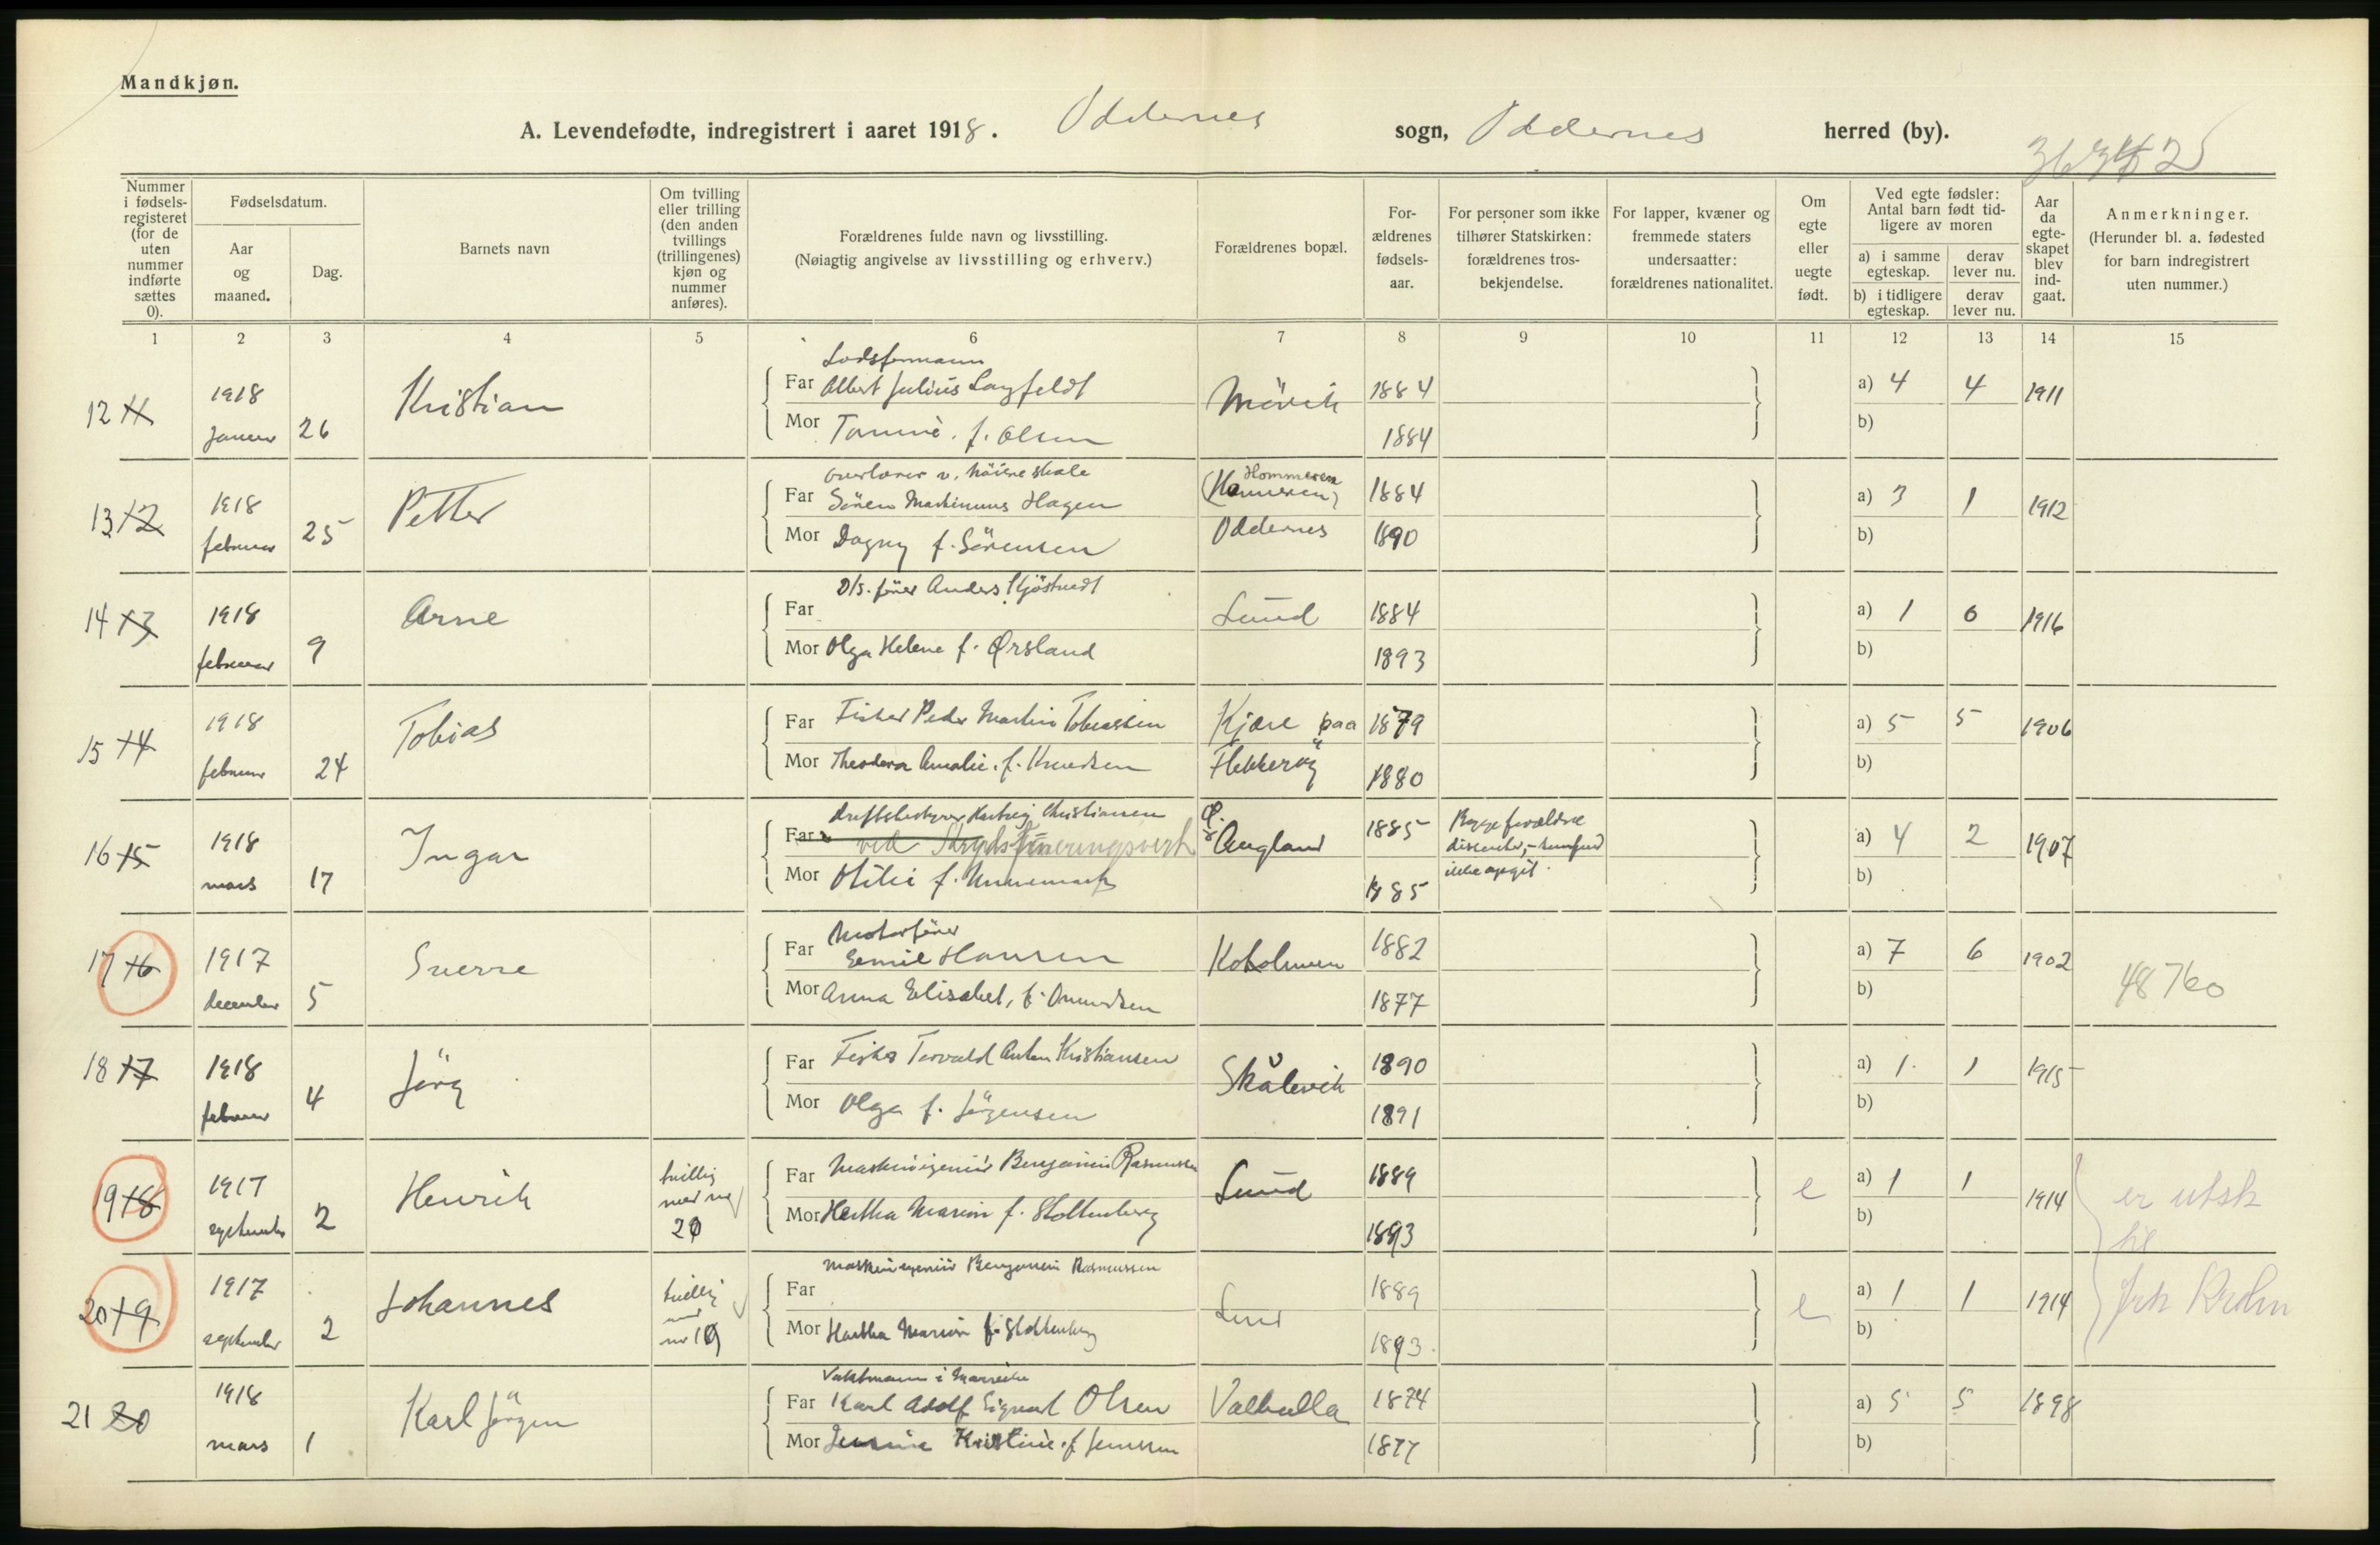 Mandkjøn.
A. Levendefødte, indregistrert i aaret 1918. Oddernes sogn, Oddernes herred (by).
Nummer i fødselsregisteret (for de uten nummer indførte sættes 0).
Fødselsdatum.
Aar og maaned.
Dag.
Barnets navn
Om tvilling eller trilling (den anden tvillings (trillingenes) kjøn og nummer anføres).
Forældrenes fulde navn og livsstilling.
(Nøiagtig angivelse av livsstilling og erhverv.)
Forældrenes bopæl.
Forældrenes fødselsaar.
For personer som ikke tilhører Statskirken: forældrenes trosbekjendelse.
For lapper, kvæner og fremmede staters undersaatter: forældrenes nationalitet.
Om egte eller uegte født.
Ved egte fødsler: Antal barn født tidligere av moren
a) i samme egteskap. derav lever nu.
b) i tidligere egteskap. derav lever nu.
Aar da egteskapet blev indgaat.
Anmerkninger.
(Herunder bl. a. fødested for barn indregistrert uten nummer.)
1 2 3 4 5 6 7 8 9 10 11 12 13 14 15
12 11 1918 Januar 26 Kristian
Far Albert Julius Langfeldt Mövik 1884 a) 4 4 1911
Mor Tomine. f. Olsen 1884 b)
13 12 1918 februar 25 Petter
overlærer v. höiere skole
Far Sören Martinius Hagen Hommeren 1884 a) 3 1 1912
Mor Dagny f. Sörensen Oddernes 1890 b)
14 13 1918 februar 9 Arne
Far Anders Lund 1884 a) 1 0 1916
Mor Olga Helene f. Ørsland 1893 b)
15 14 1918 februar 24 Tobias
Far Fisker Peder Martin Tobiassen Kjære paa 1879 a) 5 5 1906
Mor Theodora Amalie. f. Knudsen Flekkeröy 1880 b)
16 15 1918 mars 17 Ingar
driftsbestyrer Christiansen
Far ved Ø. Augland 1885 Begge forældre a) 4 2 1907
Mor Otilie f. Unnemark 1885 ikke opgit. b)
17 16 1917 december 5 Sverre
Motorfører
Far Emil Hansen Kobolmen 1882 a) 7 6 1902 48760
Mor Anna Elisabet, f. Omundsen 1877 b)
18 17 1918 februar 4 Jörg
Far Fisker Torvald Anton Kristiansen Skålevik 1890 a) 1 1 1915
Mor Olga f. Jörgensen 1891 b)
19 18 1917 september 2 Henrik tvilling med no 20
Far Maskiningeniör Benjamin Rasmussen Lund 1889 e a) 1 1 1914 er utsk
Mor Hertha Marion f. Stoltenberg 1893 b) til
20 19 1917 september 2 Johannes tvilling med no 19
Maskiningeniör Benjamin Rasmussen
Far Lund 1889 e a) 1 1 1914 frk Krohn
Mor Hertha Marion f. Stoltenberg 1893 b)
21 20 1918 mars 1 Karl Jörgen
Vaktmann i
Far Karl Adolf Sigvart Olsen Valhalla 1874 a) 5 5 1898
Mor Kristine f. Jenssen 1877 b)